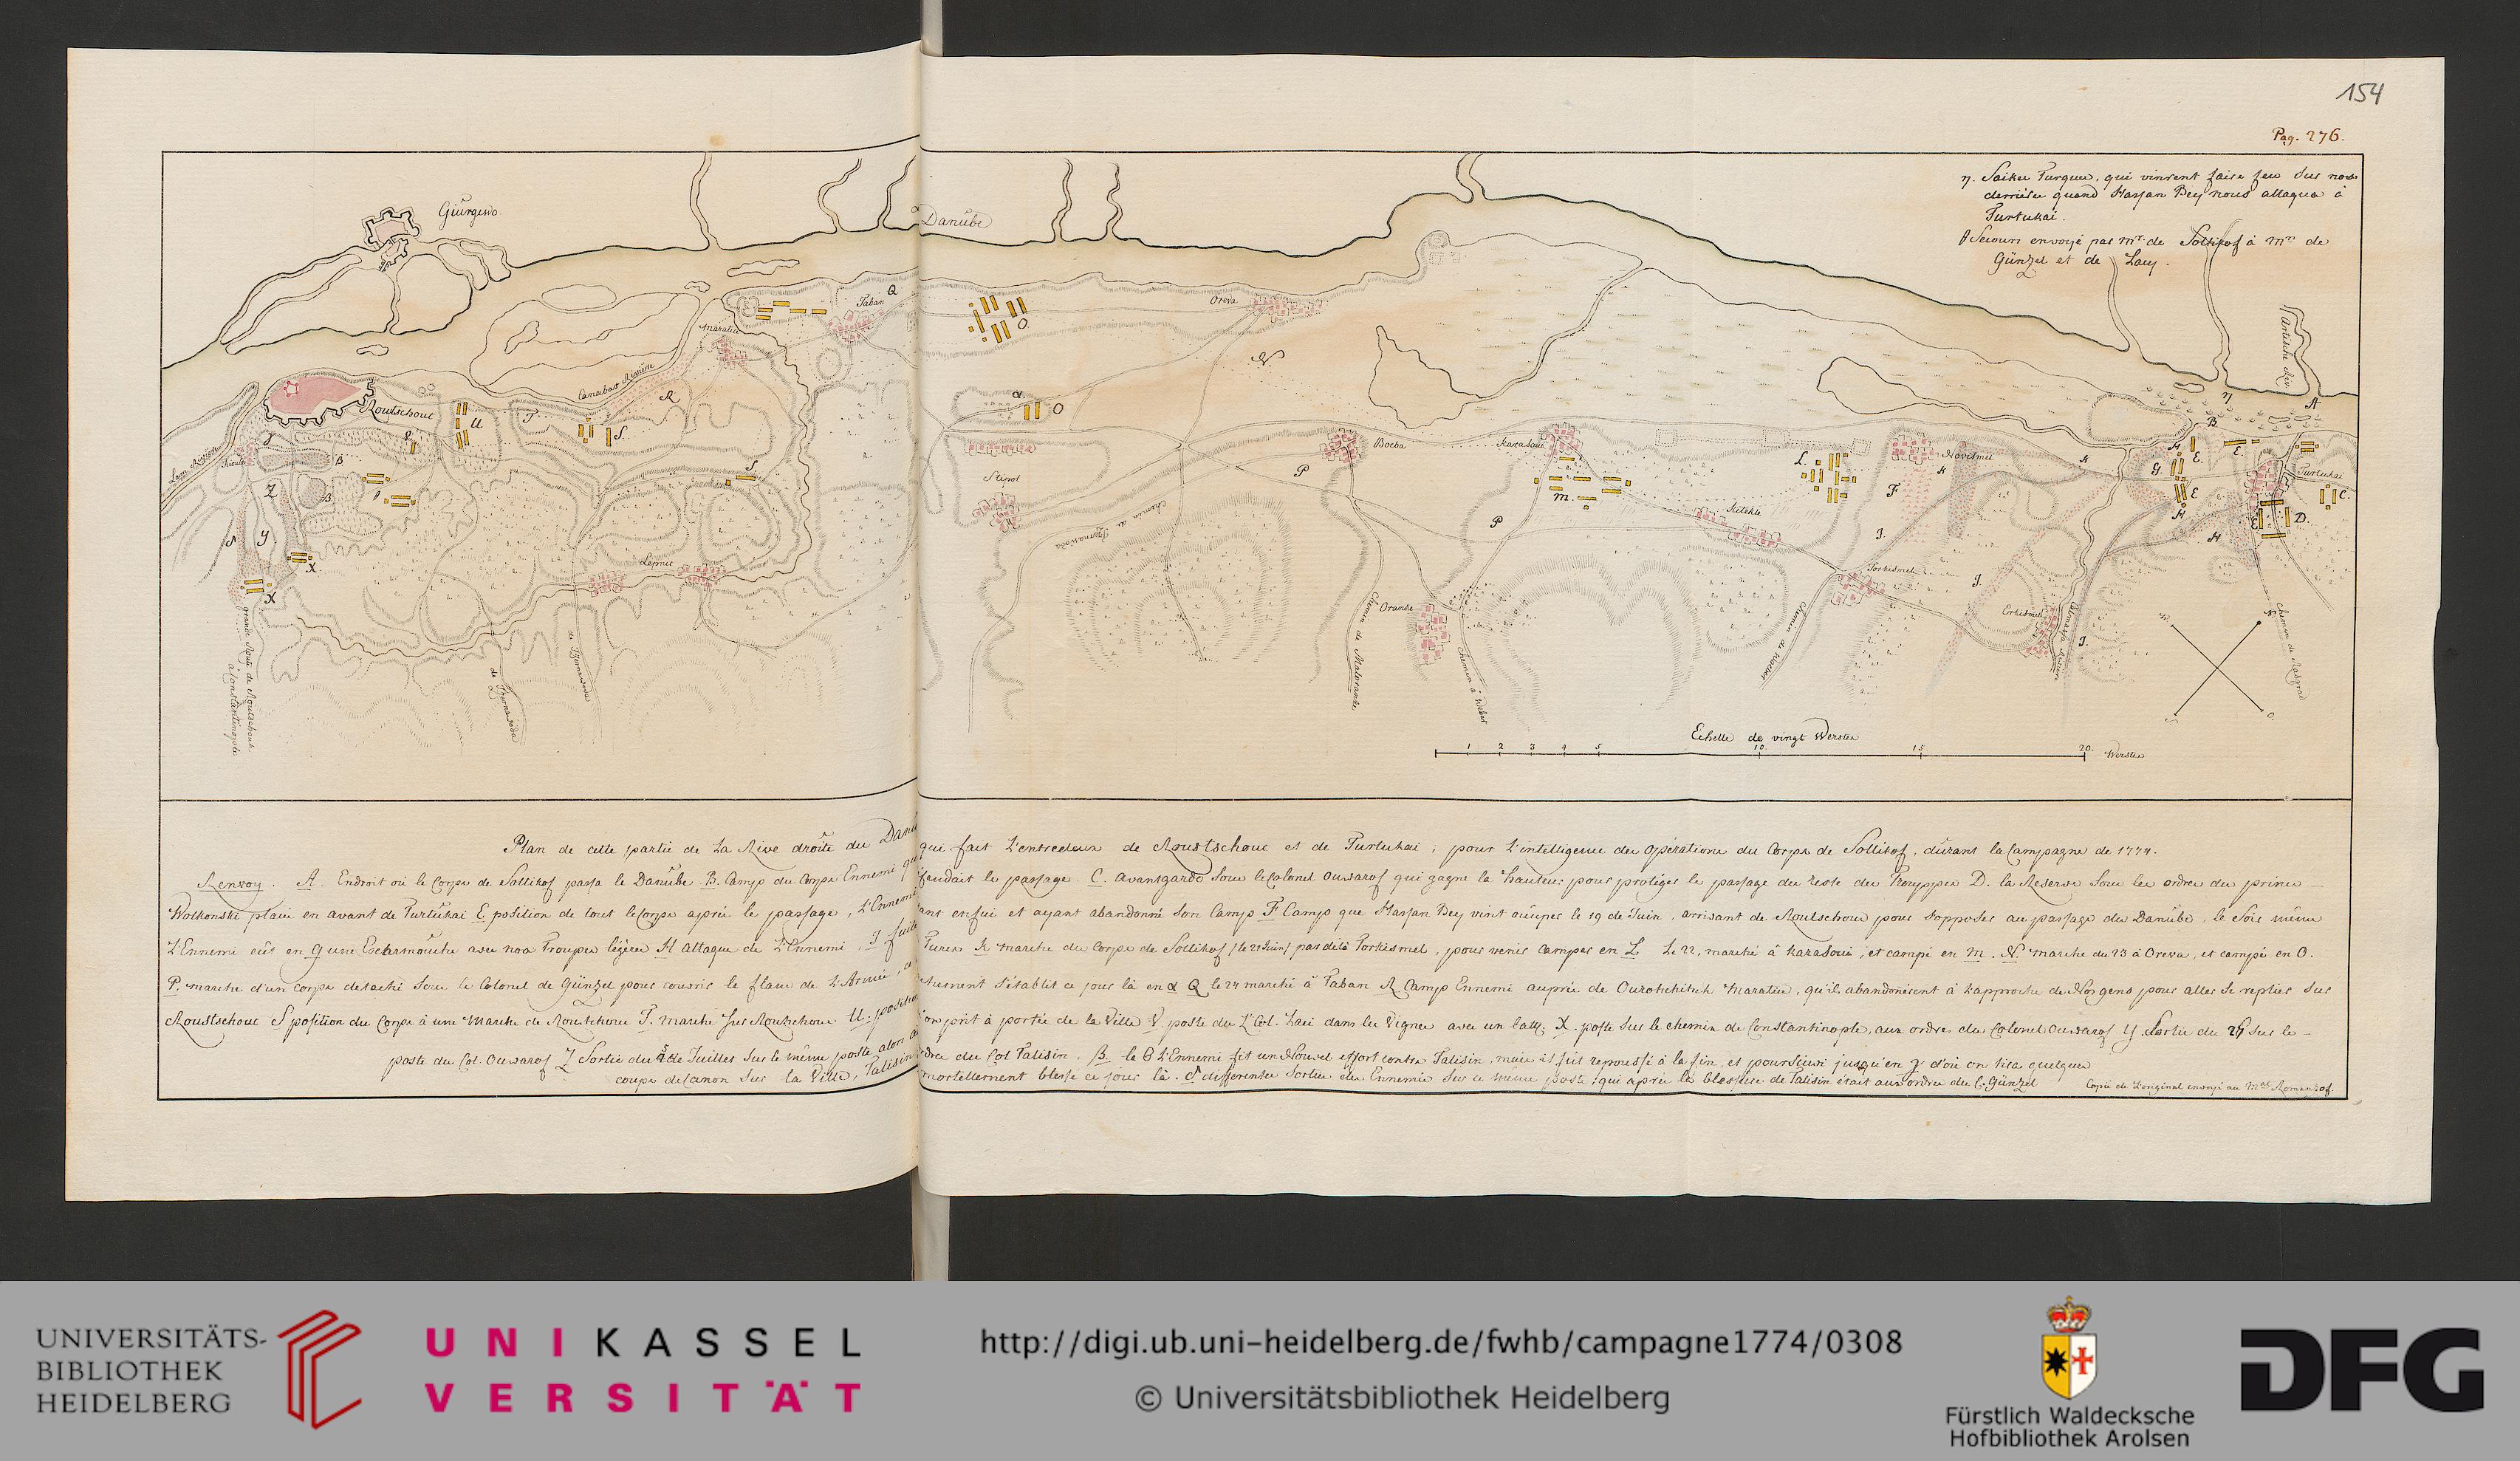 154
Pag. 276.
η. Saikes Turques, qui vinrent faire feu sur nos
derrières quand Hassan Bey nous attaqua à
Turtukai.
θ Secours envoyé par Mr. de Soltikof à Mr. de
Günzel et de Lacy.
Giurgewo.
Danube
Taban
Q
O
Oreva
N
Maratin
R
Roustschouc
U
T
S
α
O
Stirol
Bocba
P
Karasoui
M
L
Novismil
K
F
Kitchli
J.
Torkismel
Erkismil
Oramke
Lepnic
Turtukai
A
B
C
D.
E
G.
H
η
X
X
Y
Z
β
γ
grande Route de Routschouc
à Constantinople
Chemin de Madoranke
Echelle de vingt Werstes
1 2 3 4 5 10. 15 20. Werstes
Plan de cette partie de La Rive droite du Danube
qui fait L'entredeux de Roustschouc et de Turtukai, pour L'intelligence des opérations du Corps de Soltikof, durant la Campagne de 1774.
Renvoy. A. Endroit où le Corps de Soltikof passa le Danube B. Camp du Corps Ennemi qui
défendait le passage. C. avantgarde sous le Colonel Ouwarof qui gagne la hauteur pour protéger le passage du reste des Trouppes D. la Reserve sous les ordres du prince
Wolkonski placée en avant de Turtukai E position de tout le Corps après le passage, L'Ennemi
ayant abandonné son Camp F Camp que Hassan Bey vint occuper le 19 de Juin, arrivant de Routschouc pour s'opposer au passage du Danube, le soir même
L'Ennemi eût en G une Escarmouche avec nos Troupes légères H attaque de L'Ennemi, J fuite
Turcs K marche du Corps de Soltikof /le 21 Juin/ par delà Torkismel, pour venir camper en L Le 22, marché à Karasoui, et campé en M. N. marche du 23 à Oreva, et campé en O.
P. marche d'un corps detaché sous le Colonel de Günzel pour couvrir le flanc de L'Armée,
s'établit ce jour là en α Q le 24 marché à Taban R Camp Ennemi auprès de Maratin, qu'ils abandonnèrent à l'approche de Nos gens pour aller se replier sur
Roustschouc S position du Corps à une Marche de Routschouc T. marche sur Routschouc U. position
qu'on prit à portée de la Ville V. poste du L. Col. Laci dans les Vignes avec un batt. X. poste sur le chemin de Constantinople, aux ordres du Colonel Ouwarof Y. Sortie du 28 sur le
poste du Col. Ouwarof Z Sortie du Juillet sur le même poste alors
du Col Talisin. β. le 6 L'Ennemi fit un Nouvel effort contre Talisin, mais il fût repoussé à la fin, et poursuivi jusqu'en γ d'où on tira quelques
coups de canon sur la Ville, Talisin
mortellement blessé ce jour là. δ differentes Sorties des Ennemis sur ce même poste, qui après la blessure de Talisin était aux ordres du C. Günzel
Copie de L'original envoyé au Mal Romanzof.
UNIVERSITÄTS-
BIBLIOTHEK
HEIDELBERG
UNIKASSEL
VERSITÄT
http://digi.ub.uni-heidelberg.de/fwhb/campagne1774/0308
© Universitätsbibliothek Heidelberg
Fürstlich Waldecksche
Hofbibliothek Arolsen
DFG